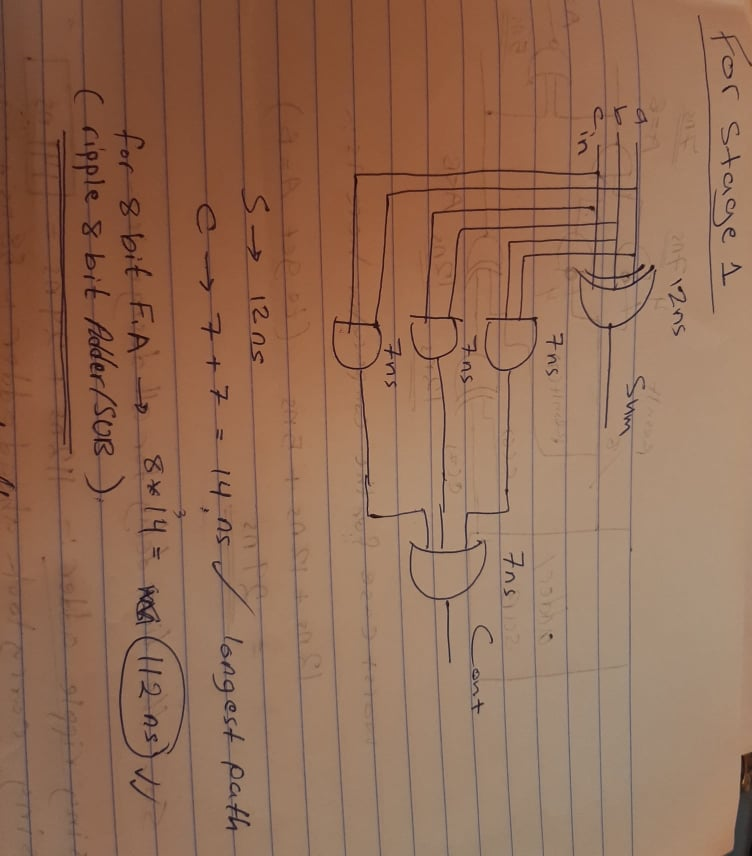 For Stage 1
a
b
Cin
12ns
Sum
7ns
7ns
7ns
7ns
Cout
S → 12ns
C → 7 + 7 = 14 ns ✓ longest path
for 8 bit F.A → 8*14 = (112 ns) ✓✓
(ripple 8 bit Adder/SUB)